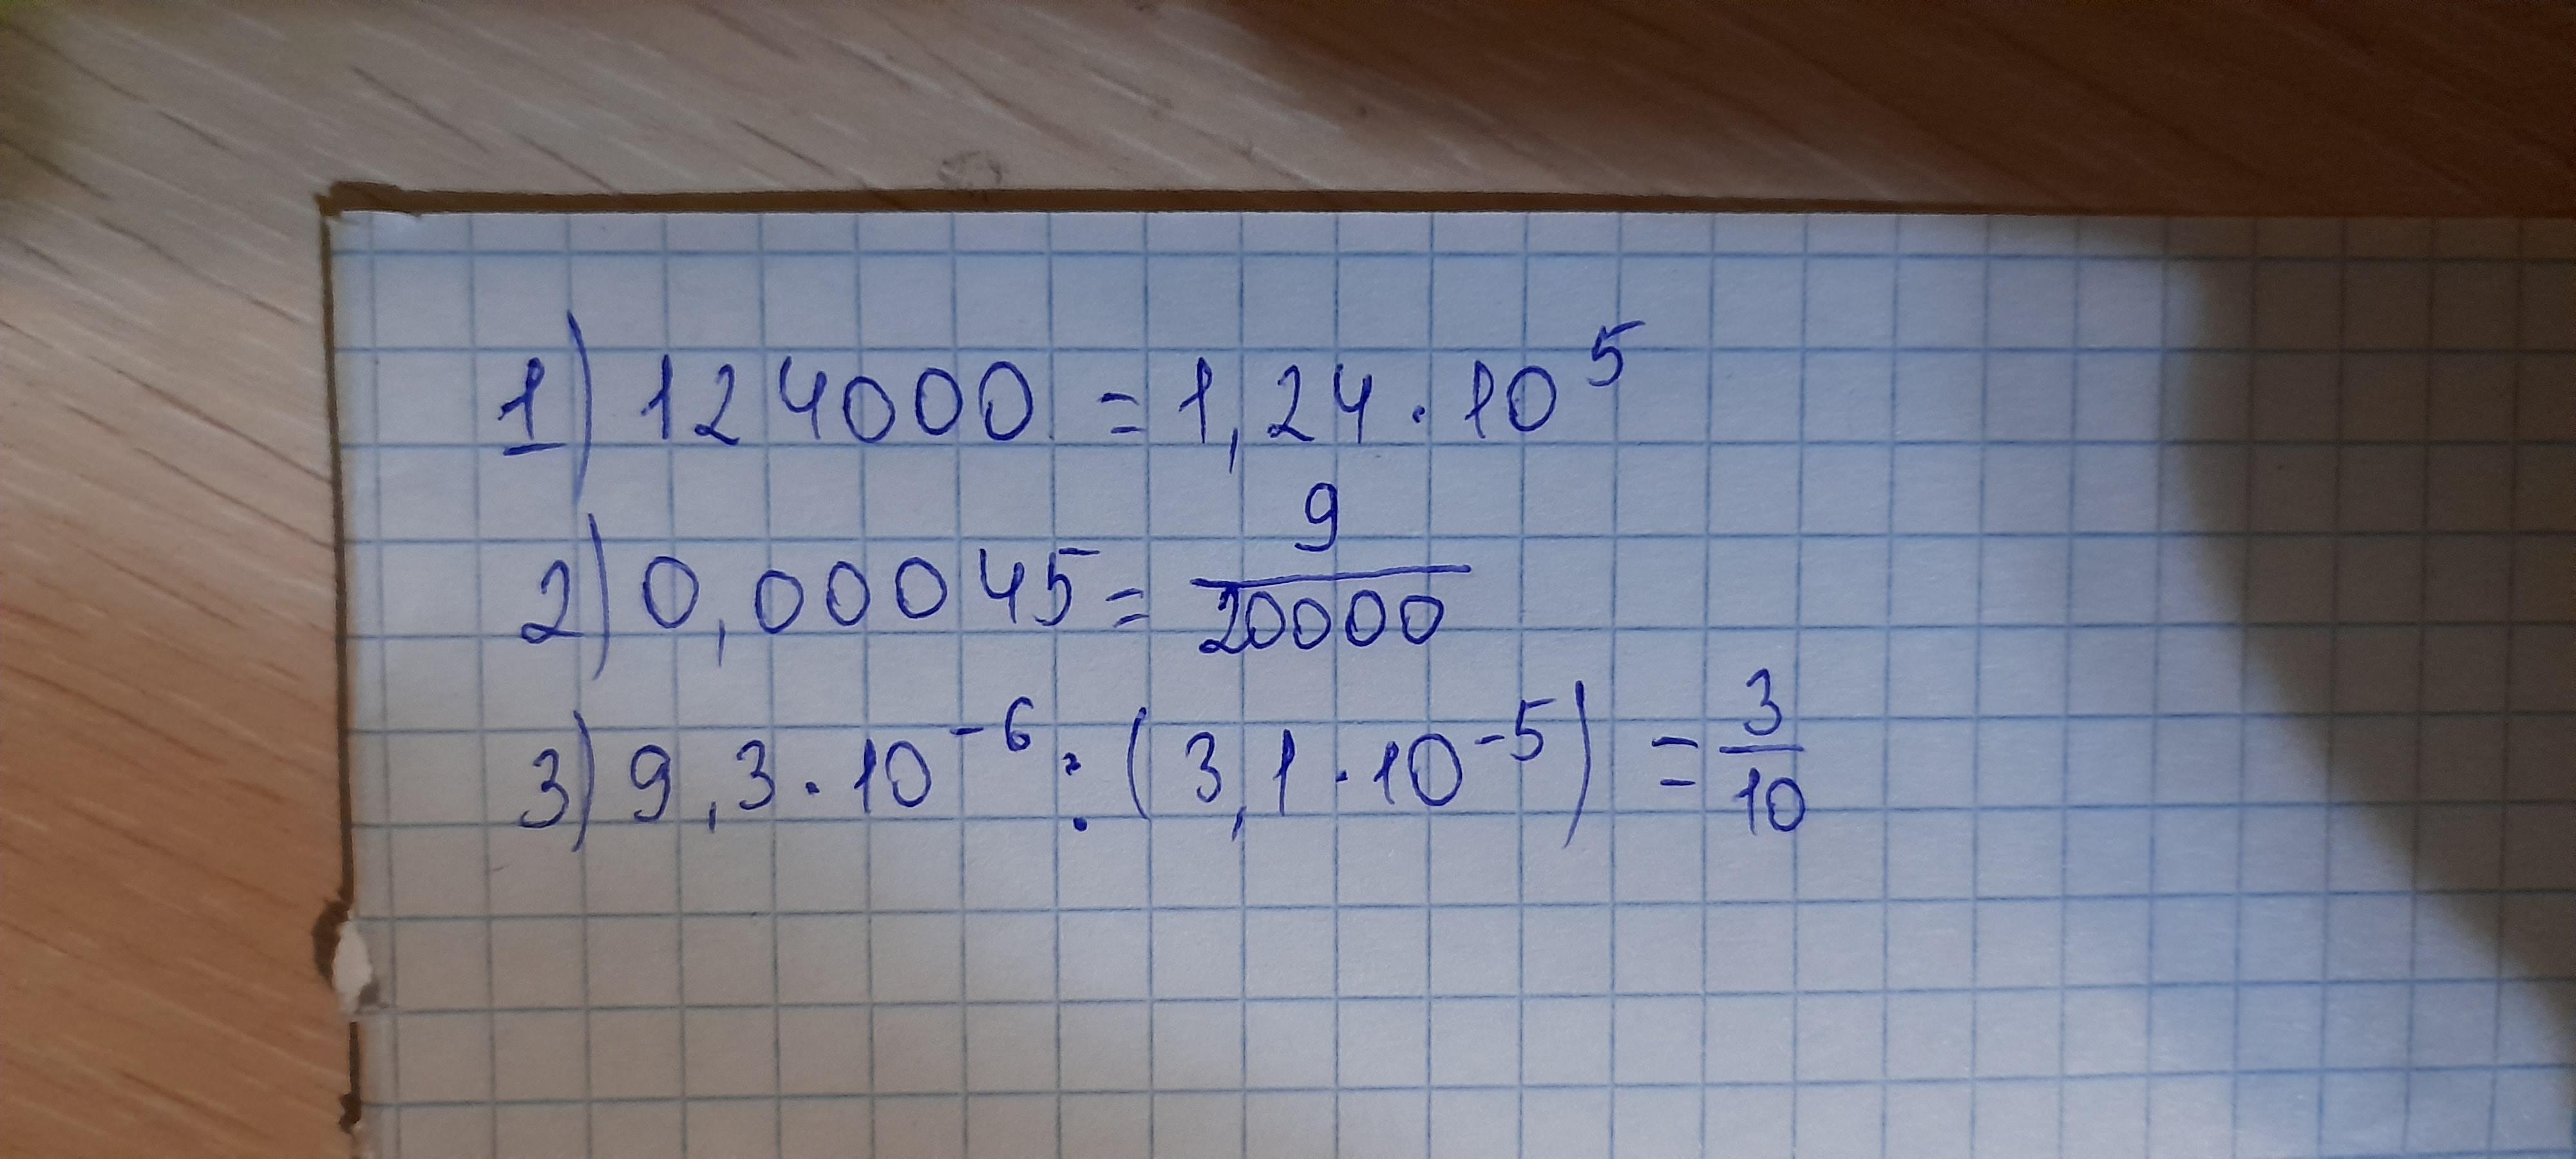 1) 124000 = 1,24 · 10⁵
2) 0,00045 = 9/20000
3) 9,3 · 10⁻⁶ : (3,1 · 10⁻⁵) = 3/10